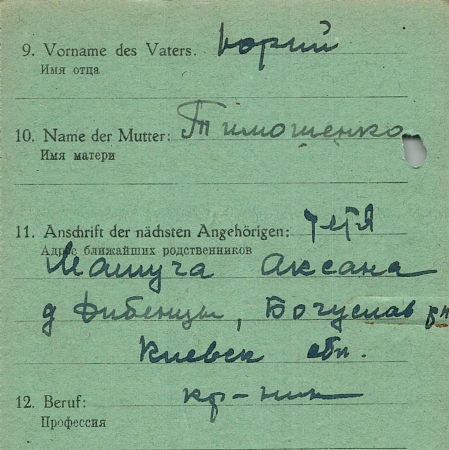 9. Vorname des Vaters. Юрий
Имя отца
10. Name der Mutter: Тимошенко
Имя матери
11. Anschrift der nächsten Angehörigen: тетя
Адрес ближайших родственников
Машуча Аксана
д Дибенцы, Богуслав рн
Киевск обл.
12. Beruf: кр-ник
Профессия